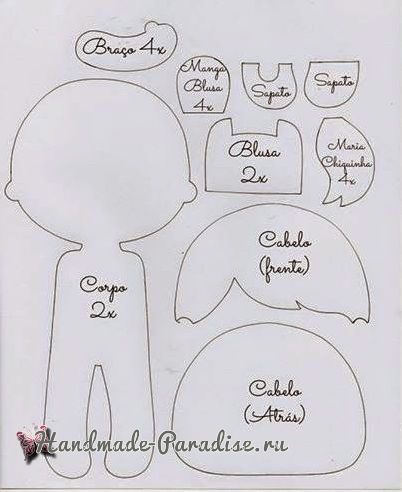 Braço 4x
Manga
Blusa
4x
Sapato
Sapato
Blusa
2x
Maria
Chiquinha
4x
Cabelo
(frente)
Corpo
2x
Cabelo
(Atrás)
Handmade-Paradise.ru